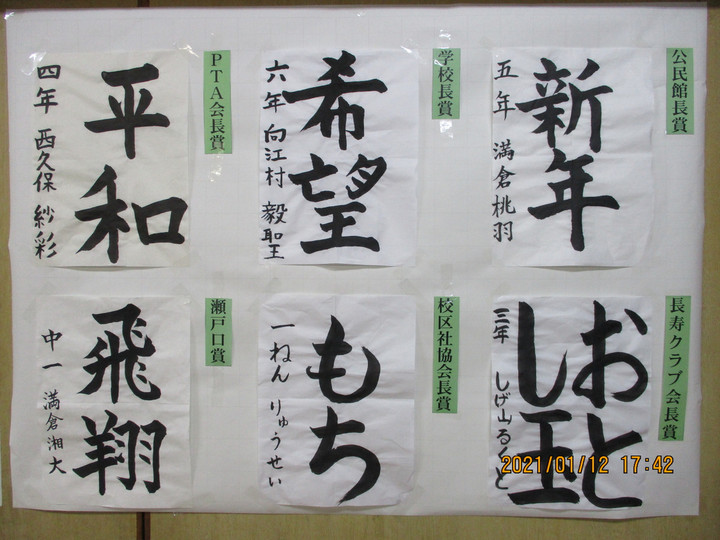 公民館長賞
新年
五年 満倉桃羽
学校長賞
希望
六年 向江村 毅聖
PTA会長賞
平和
四年 西久保 紗彩
長寿クラブ会長賞
おと
し玉
三年 しげ山るくと
校区社協会長賞
もち
一ねん りゅうせい
瀬戸口賞
飛翔
中一 満倉湘大
2021/01/12 17:42